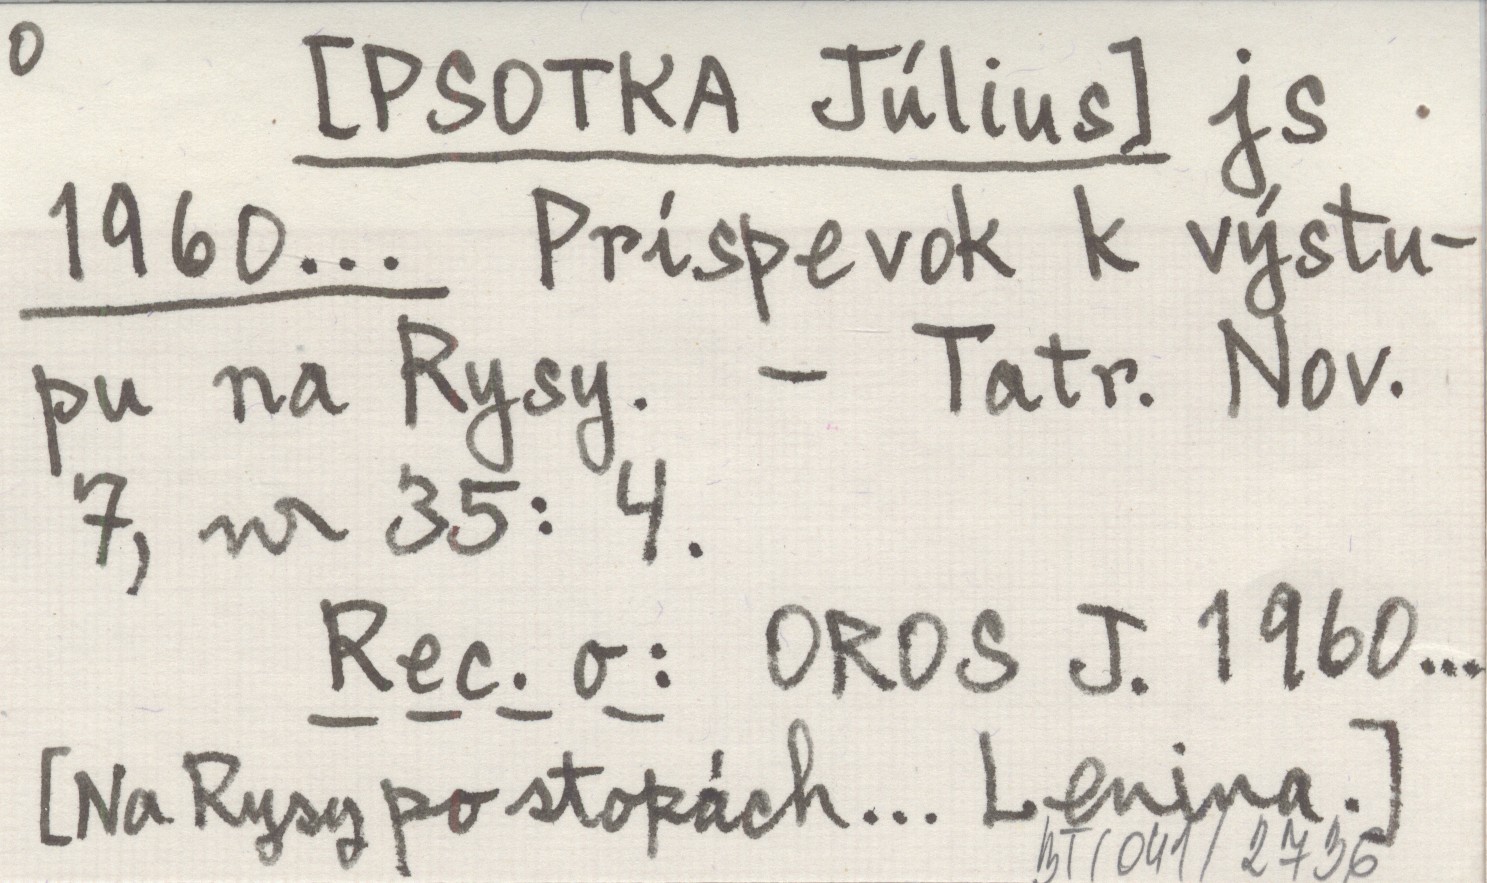 0
[PSOTKA Július] js
1960... Príspevok k výstu-
pu na Rysy. - Tatr. Nov.
7, nr 35: 4.
Rec. o: OROS J. 1960...
[Na Rysy po stopách... Lenina.]
BT/041/2736